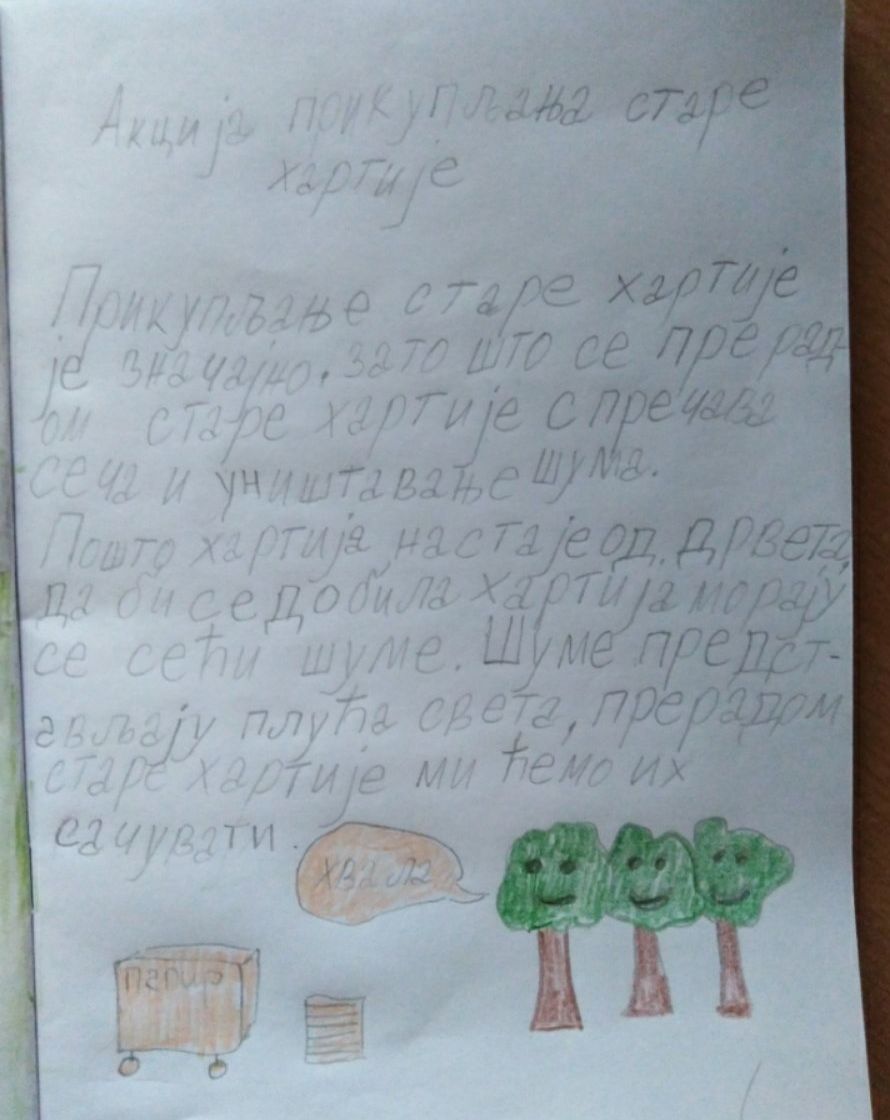 Акција прикупљања старе
хартије
Прикупљање старе хартије
је значајно. зато што се прерад-
ом старе хартије спречава
сеча и уништавање шума.
Пошто хартија настаје од дрвета,
да би се добила хартија морају
се сећи шуме. Шуме предст-
ављају плућа света, прерадом
старе хартије ми ћемо их
сачувати.
хвала
папир